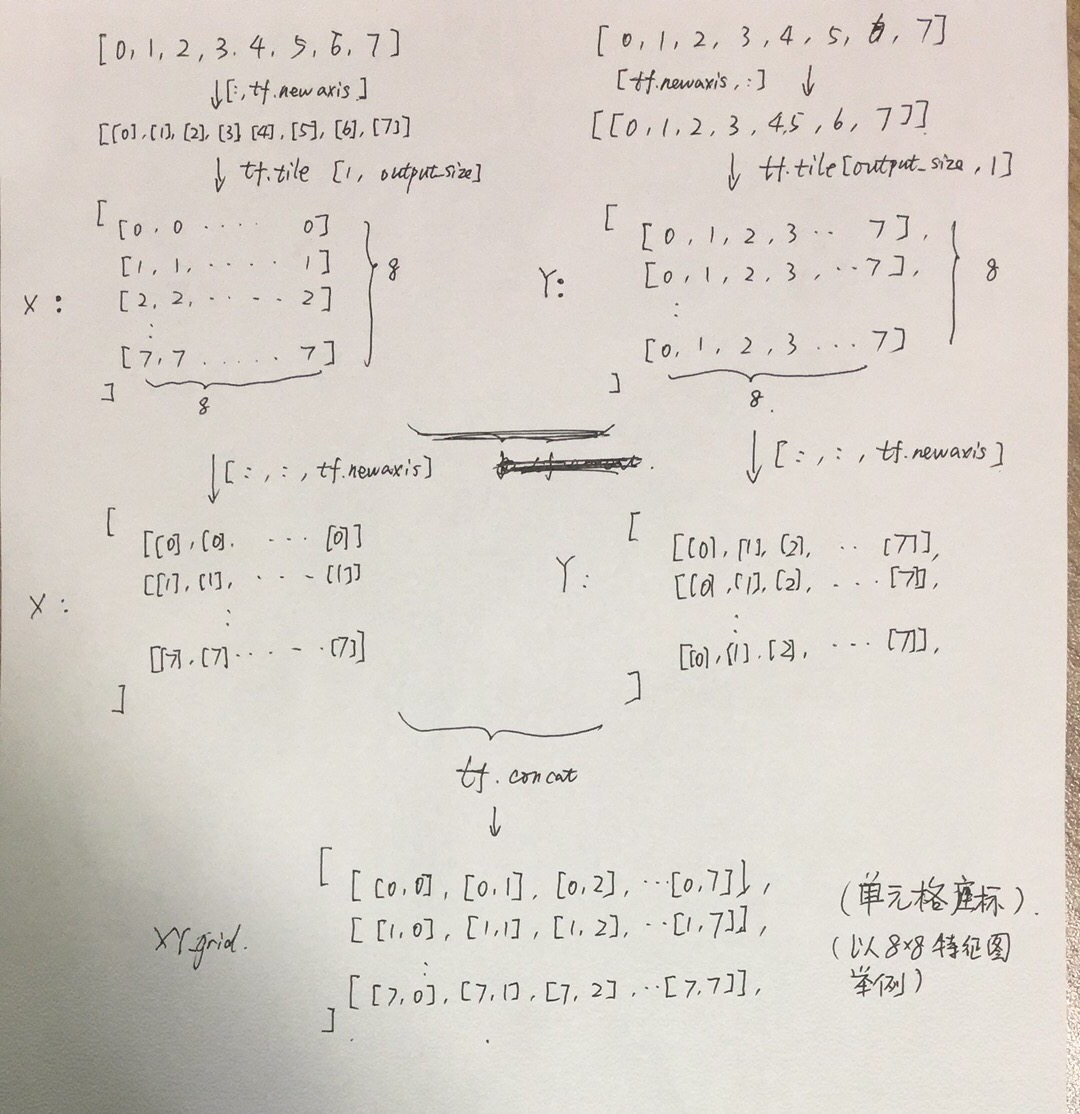 [0, 1, 2, 3. 4, 5, 6, 7]
↓[:, tf.newaxis]
[[0], [1], [2], [3] [4], [5], [6], [7]]
↓ tf.tile [1, output_size]
X:
[
[0, 0 ···· 0]
[1, 1, ····· 1]
[2, 2, ····· 2]
⋮
[7, 7 ····· 7]
]
8
8
↓[:, :, tf.newaxis]
X:
[
[[0], [0]. ··· [0]]
[[1], [1], ···· [1]]
⋮
[[7], [7] ····· [7]]
]
[0, 1, 2, 3, 4, 5, 6, 7]
[tf.newaxis, :] ↓
[[0, 1, 2, 3, 4,5, 6, 7]]
↓ tf.tile[output_size, 1]
Y:
[
[0, 1, 2, 3 ·· 7],
[0, 1, 2, 3, ·· 7],
⋮
[0, 1, 2, 3 ··· 7]
]
8
8.
↓[:, :, tf.newaxis]
Y:
[
[[0], [1], [2], ·· [7]],
[[0], [1], [2], ··· [7]],
⋮
[[0], [1]. [2], ··· [7]],
]
tf.concat
↓
XY_grid.
[
[[0,0], [0,1], [0,2], ···[0,7]],
[[1,0], [1,1], [1,2], ··[1,7]],
⋮
[[7,0], [7,1], [7,2], ··[7,7]],
]
(单元格座标).
(以8×8特征图
举例)